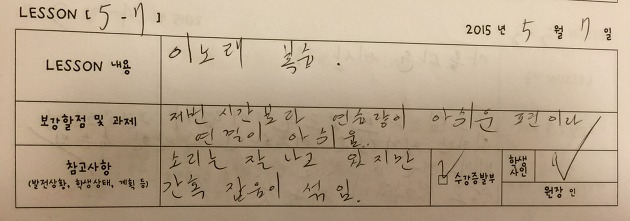 LESSON [ 5-7 ] 2015 년 5 월 7 일
LESSON 내용 이노래 복습.
보강할점 및 과제 저번 시간보다 연습량이 아쉬운 편이다
연결이 아쉬움.
참고사항 소리는 잘 나고 있지만 수강증발부 학생 사인
(발전상황, 학생상태, 계획 등) 간혹 잡음이 섞임. 원장 인